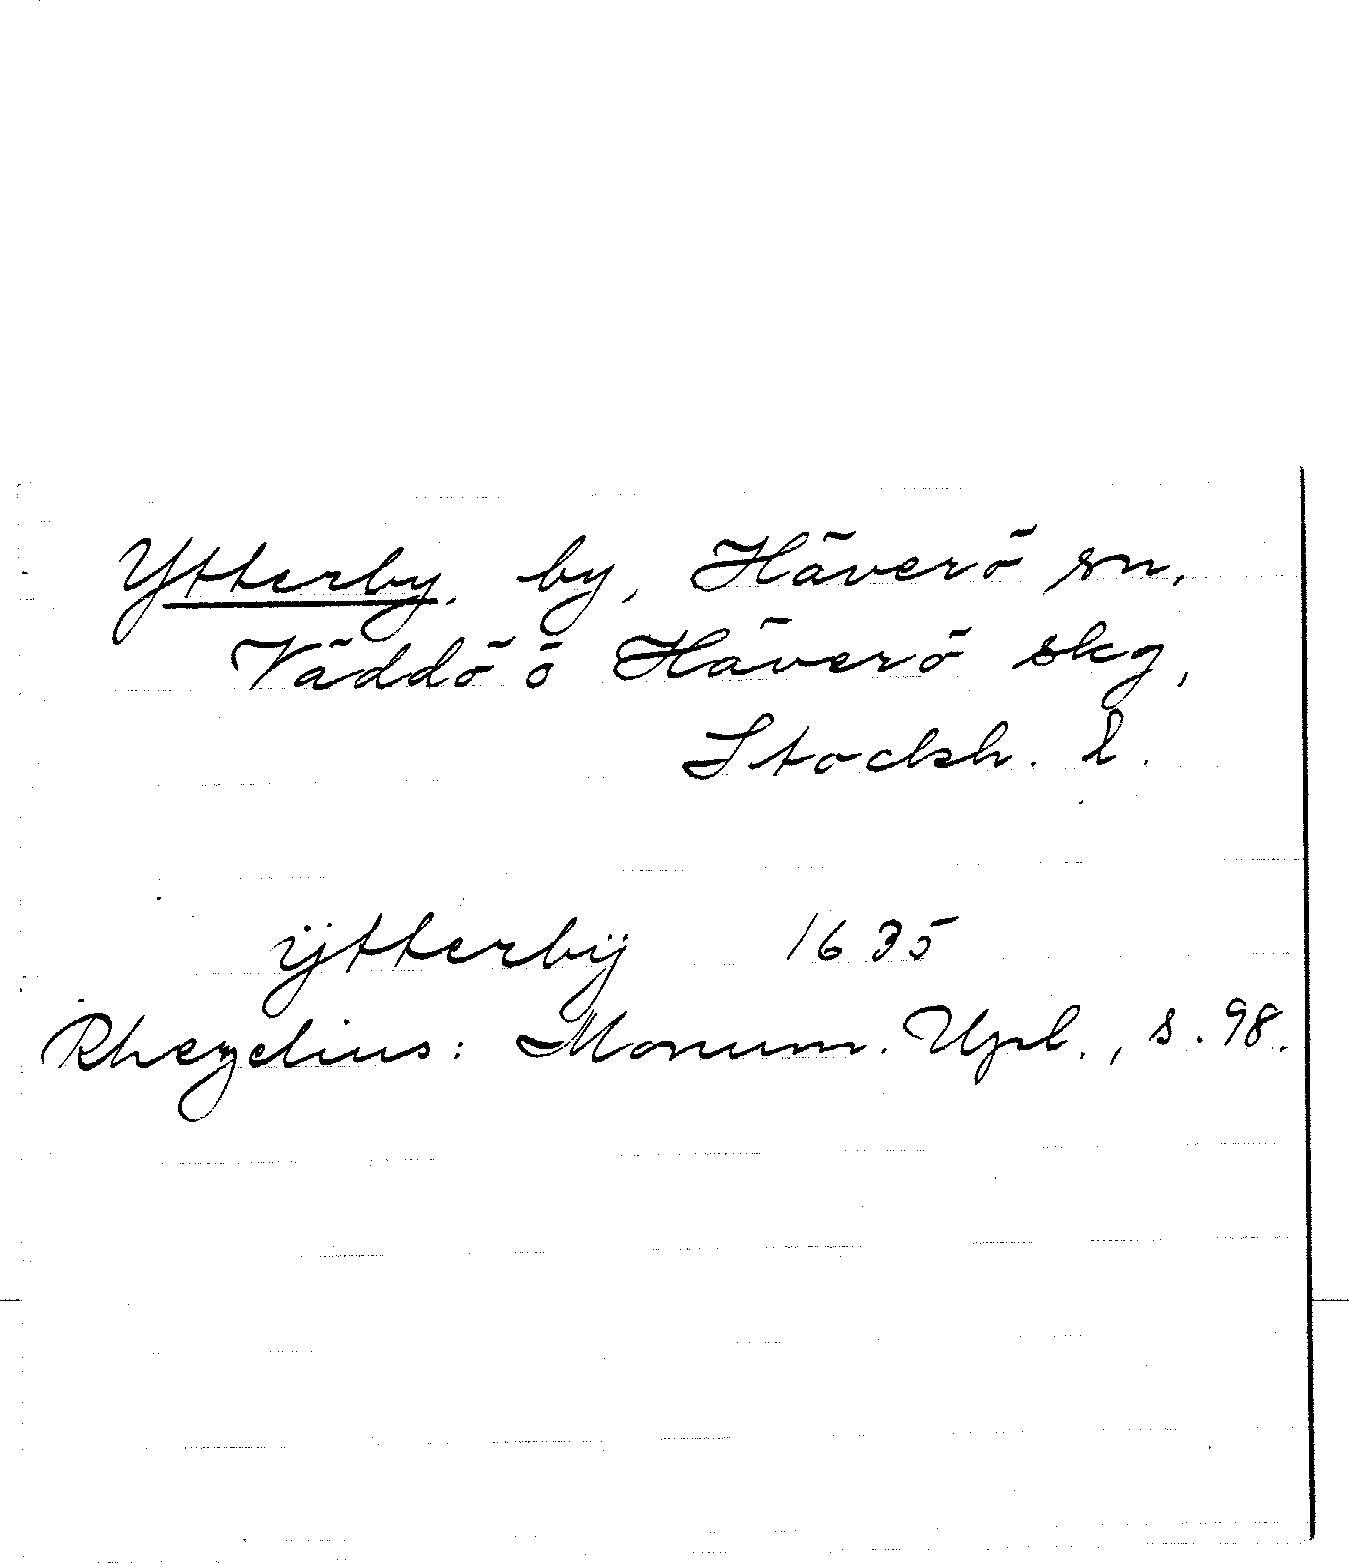 Ytterby, by, Häverö sn,
Väddö ö Häverö skg,
Stockh. l.
ÿtterbÿ 1635
Rhezelius: Monum. Upl., s. 98.